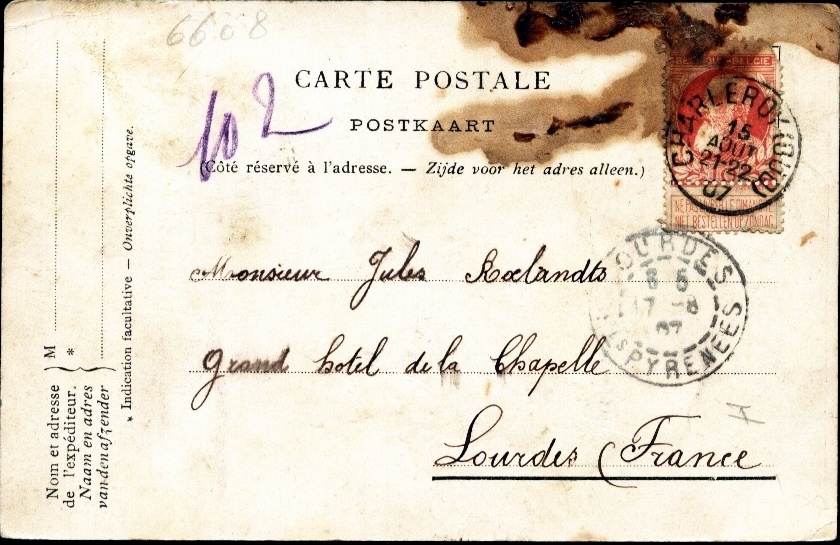 6608
CARTE POSTALE
102
POSTKAART
(Côté réservé à l'adresse. — Zijde voor het adres alleen.)
BELGIQUE-BELGIE
CHARLEROY (SUD)
15
AOUT
21-22
07
NE PAS LIVRER LE DIMANCHE
NIET BESTELLEN OP ZONDAG
LOURDES
17-8
07
PYRENEES
Monsieur Jules Roelandts
Grand hotel de la Chapelle
Lourdes (France
Nom et adresse
de l'expéditeur.
Naam en adres
van den afzender
M
*
* Indication facultative — Onverplichte opgave.